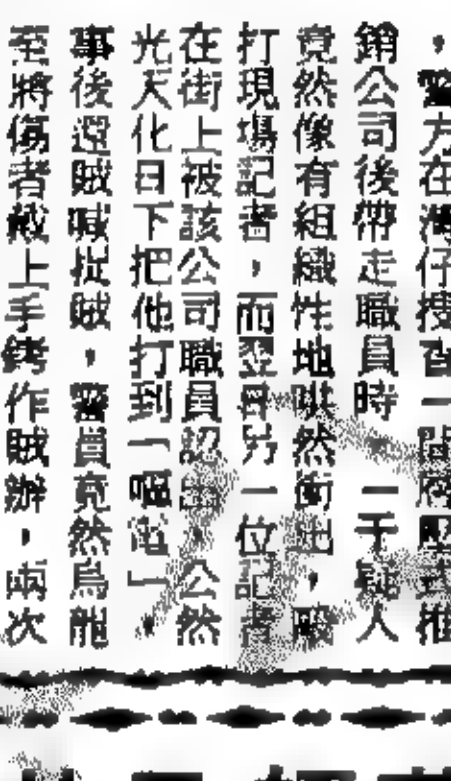 ，警方在灣仔搜查一間層壓式推
銷公司後帶走職員時，一干疑人
竟然像有組織性地哄然衝出，毆
打現場記者，而翌日另一位記者
在街上被該公司職員認出，公然
光天化日下把他打到「嘔電」，
事後還賊喊捉賊，警員竟然烏龍
至將傷者戴上手銬作賊辦，兩次